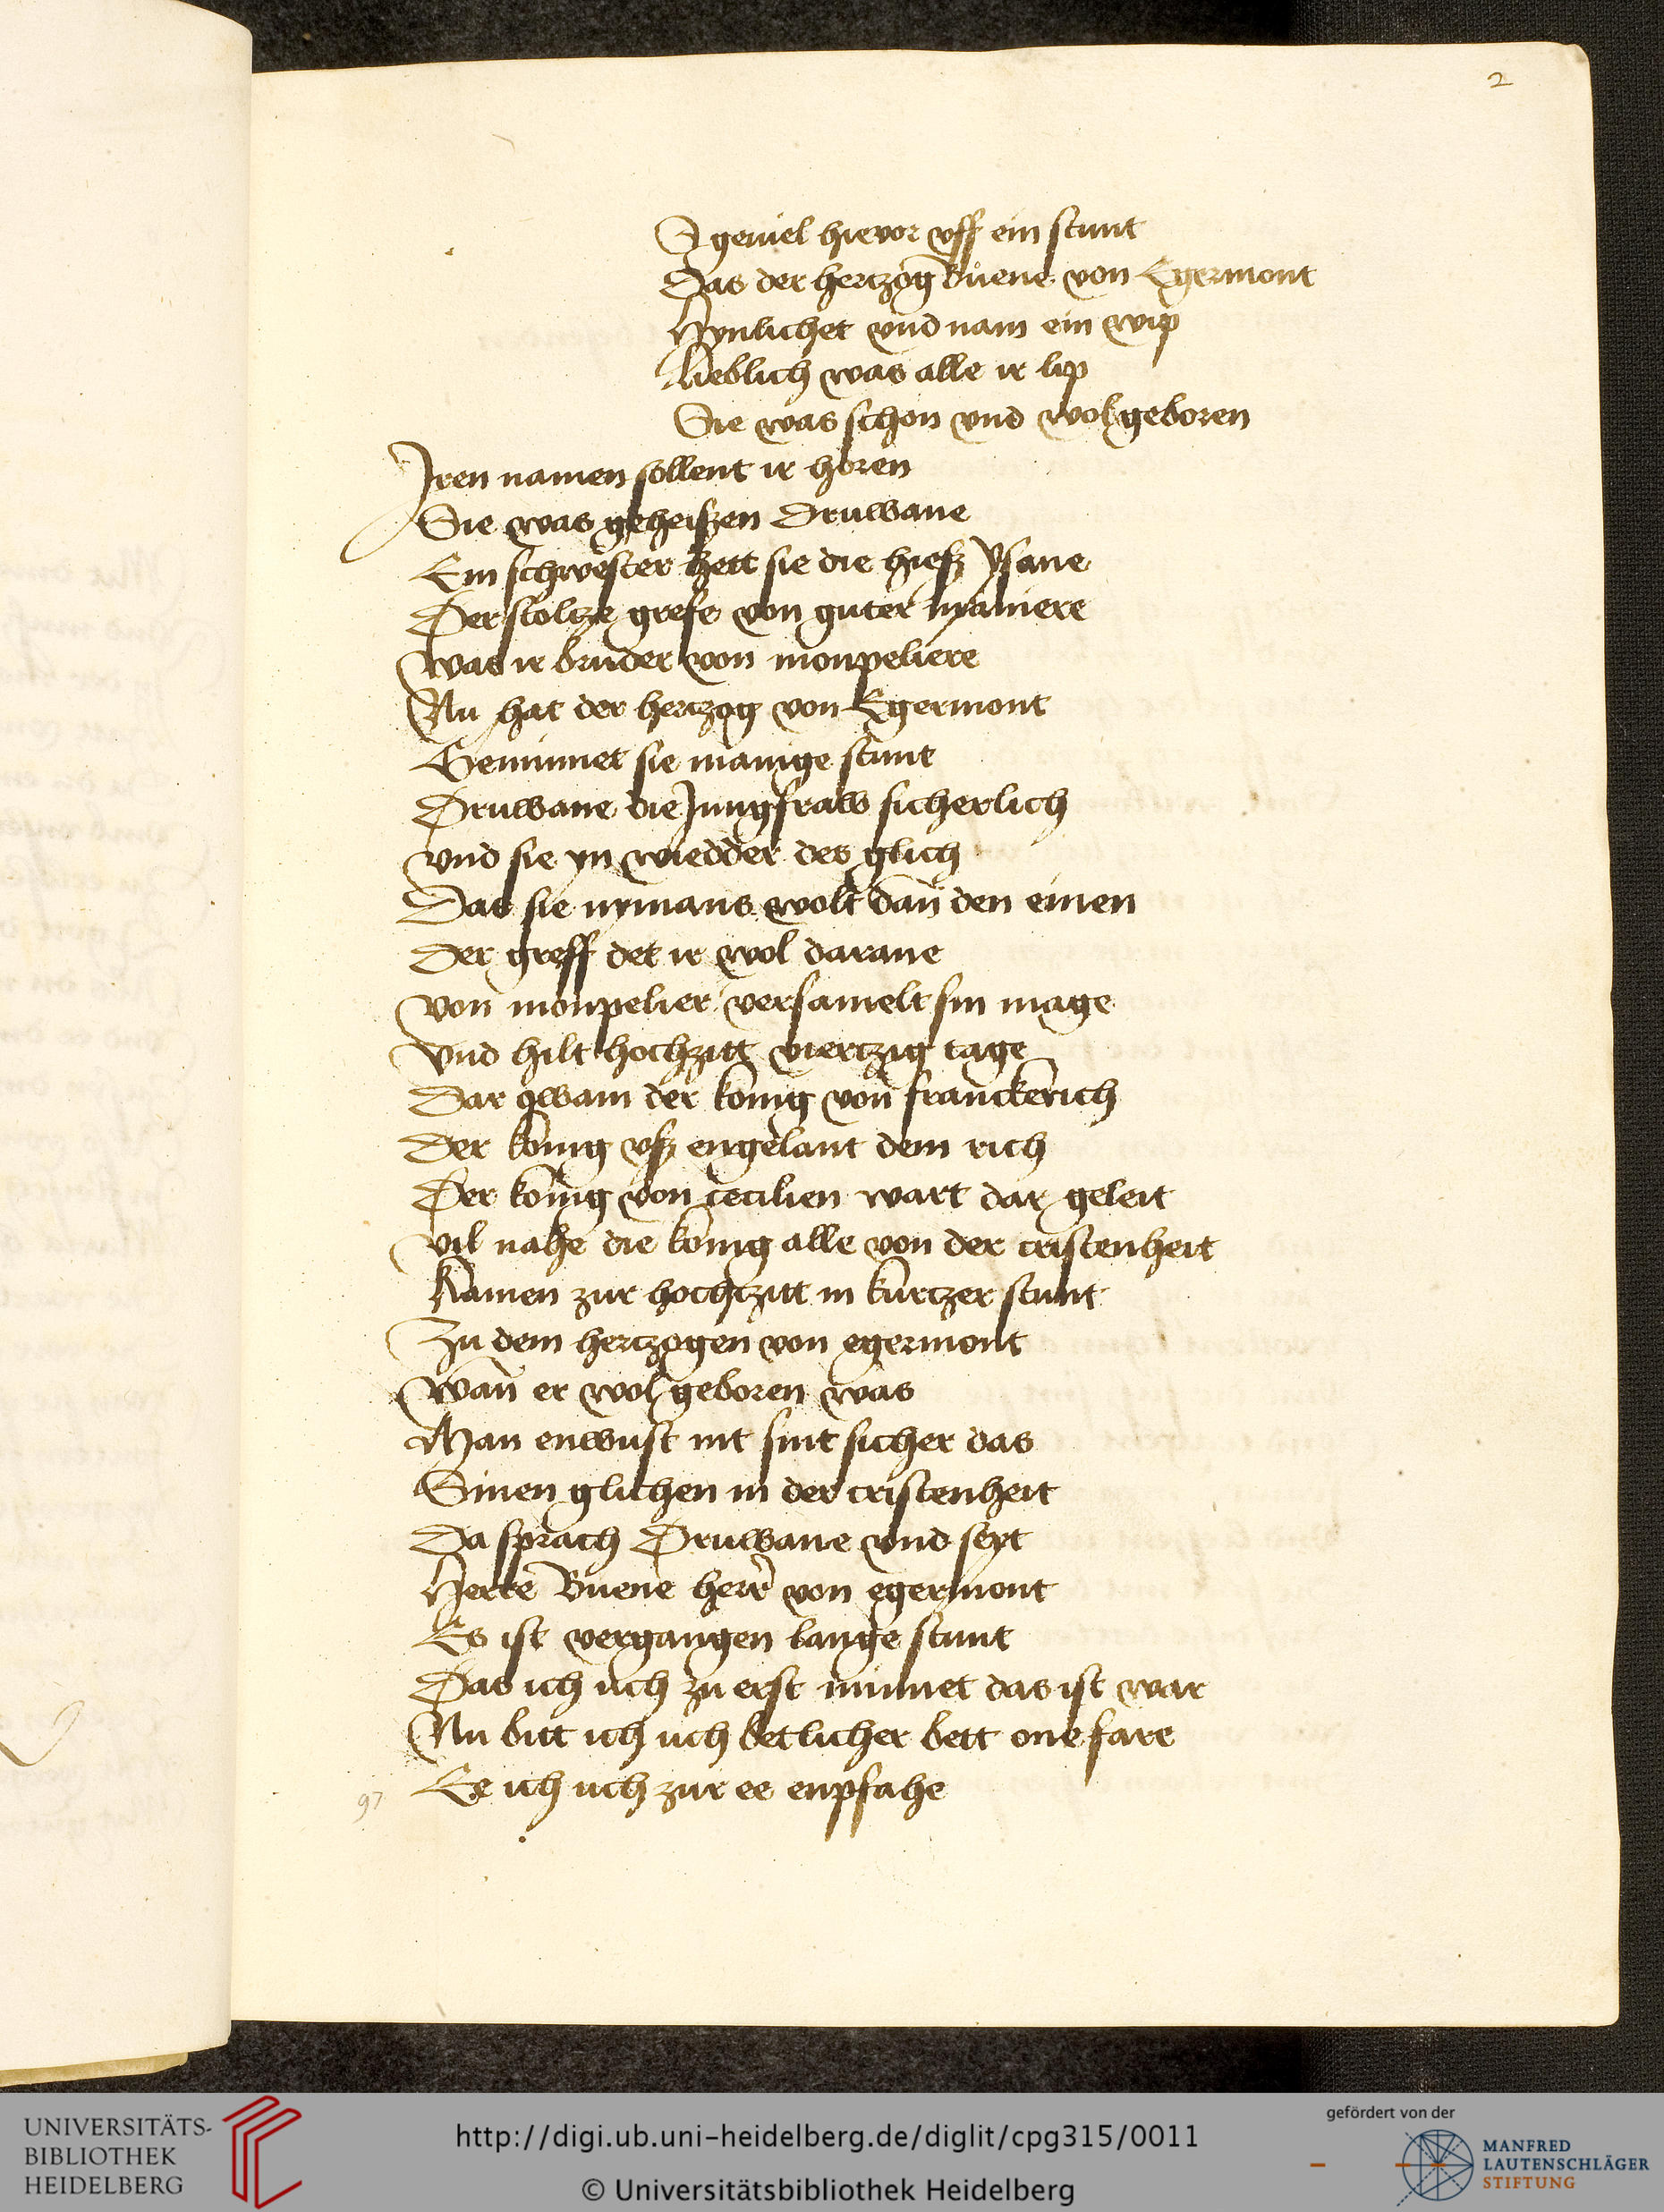 2
S geuiel hieuor vff ein stunt
Das der hertzog buene von Egermont
Hynlichet vnd nam ein wip
Lieblich was alle ir lip
Sie was schon vnd wol geboren
Iren namen sollent ir horen
Sie was geheißen Druwane
Ein schwester hett sie die hieß ysane
Der stoltze grefe von guter maniere
was ir bruder von monpeliere
Nu hat der hertzog von Egermont
Geminnet sie manige stunt
Druwane die Jungfraw sicherlich
vnd sie yn wiedder des glich
Das sie nymans wolt dan̄ den einen
Der greff det ir wol darane
von monpelier versamelt sin mage
vnd hilt hochzitt viertzig tage
Dar qwam der konig von franckerich
Der konig vß engelant dem rich
Der konig von cecilien wart dar geleit
vil nahe die konig alle von der cristenheit
kamen zur hochtzitt in kurtzer stunt
Zu dem hertzogen von egermont
wan̄ er wol geboren was
Man enwust nit sint sicher das
Sinen glichen in der cristenheit
Da sprach Druwane vnd seyt
Herre Buene herr von egermont
Es ist vergangen lange stunt
Das ich uch zu erst minnet das ist war
Nu bitt ich uch betlicher bett one fare
Ee ich uch zur ee enpfahe
97
UNIVERSITÄTS-
BIBLIOTHEK
HEIDELBERG
http://digi.ub.uni-heidelberg.de/diglit/cpg315/0011
© Universitätsbibliothek Heidelberg
gefördert von der
MANFRED
LAUTENSCHLÄGER
STIFTUNG